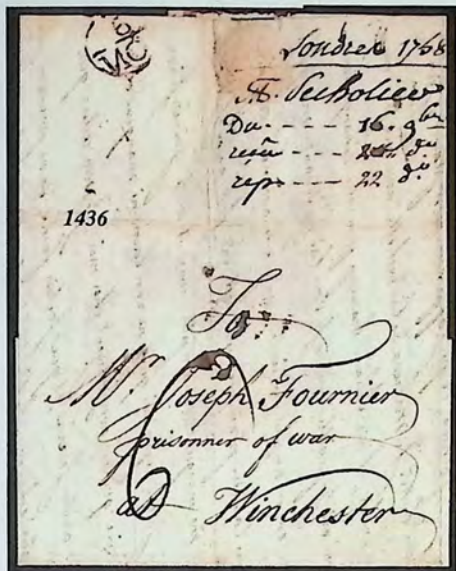 NO
Londres 1758
Du - - - - 16. 9bre
reçu - - - - do
rep - - - - 22 do
1436
To
Mr. Joseph Fournier
prisonner of war
at Winchester